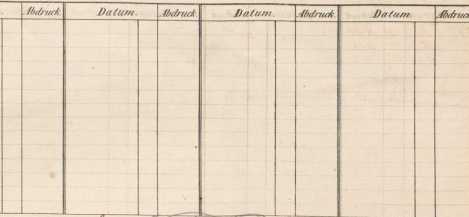 Abdruck. Datum. Abdruck. Datum. Abdruck. Datum. Abdruck